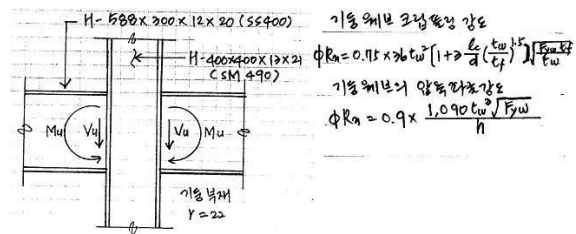 H-588×300×12×20 (SS400)
H-400×400×13×21
(SM 490)
Mu
Vu
Vu
Mu
기둥부재
r=22
기둥 웨브 크립플링 강도
ϕRn = 0.75 × 36 tw² [1+3 lc/d (tw/tf)^1.5] √(Fyw·tf/tw)
기둥웨브의 압축좌굴강도
ϕRn = 0.9 × 1,090 tw³ √Fyw / h